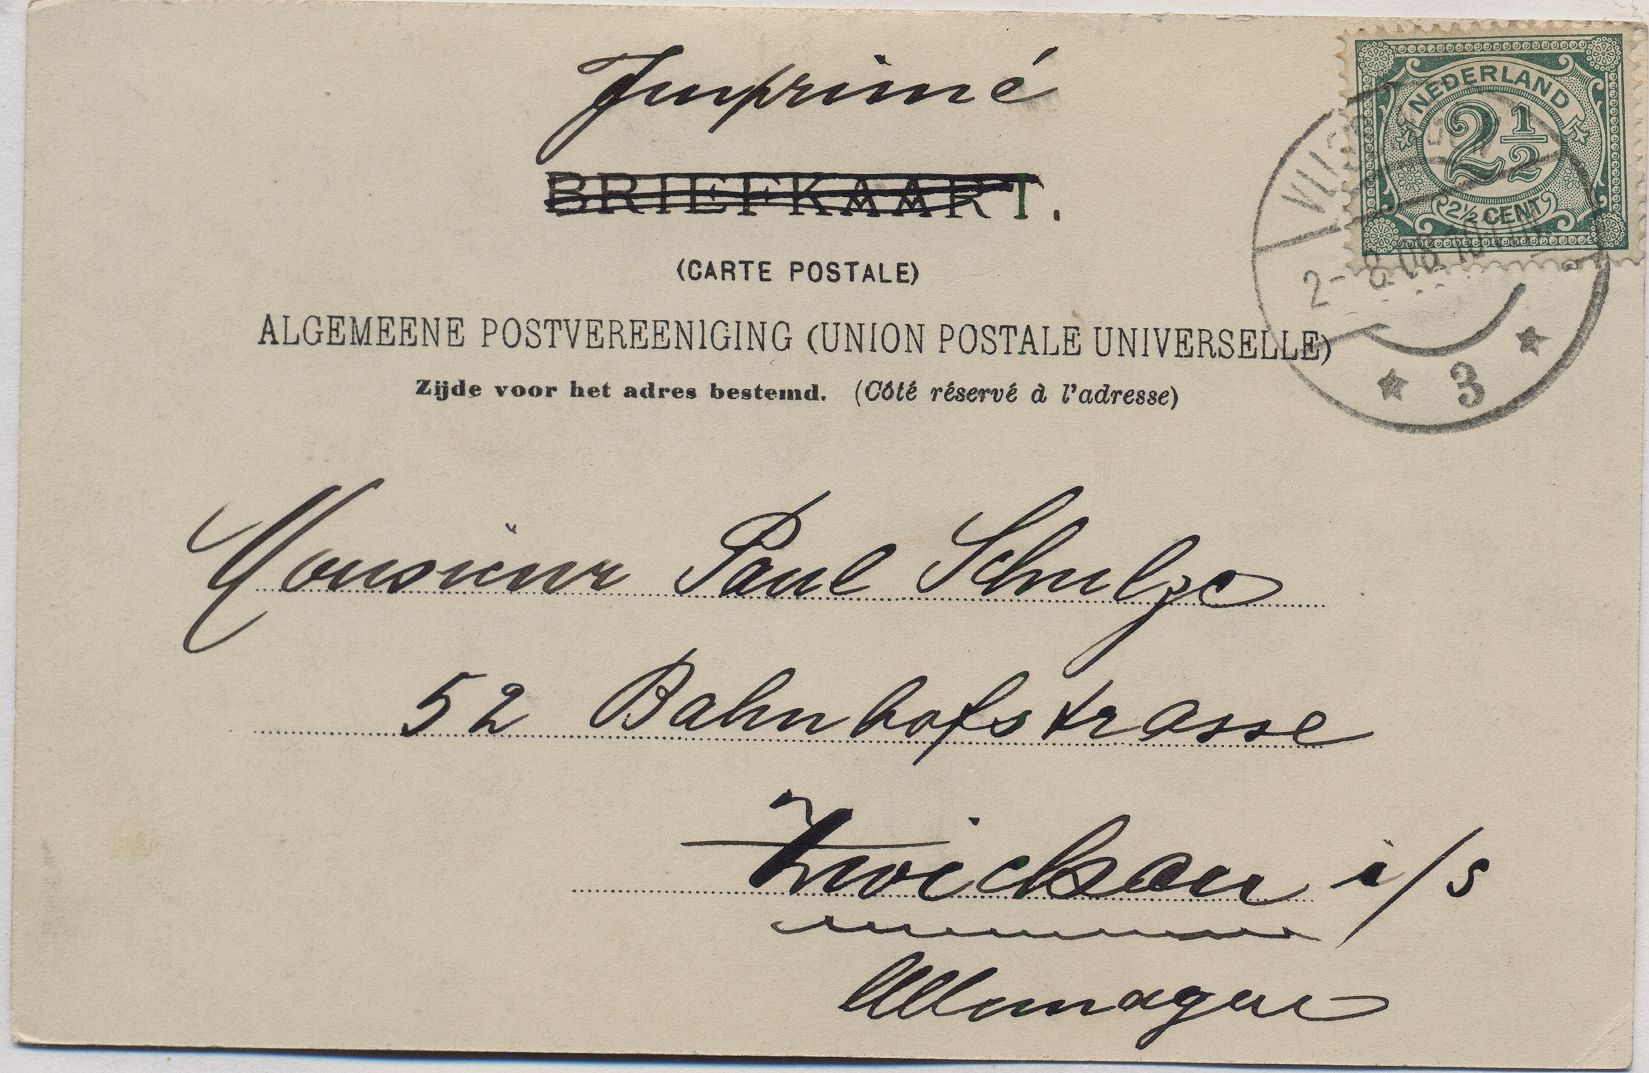 Imprimé
BRIEFKAART.
(CARTE POSTALE)
ALGEMEENE POSTVEREENIGING (UNION POSTALE UNIVERSELLE)
Zijde voor het adres bestemd. (Côté réservé à l'adresse)
NEDERLAND
2½
2½ CENT
3
Monsieur Paul Schulze
52 Bahnhofstrasse
Zwickau i/s
Allemagne